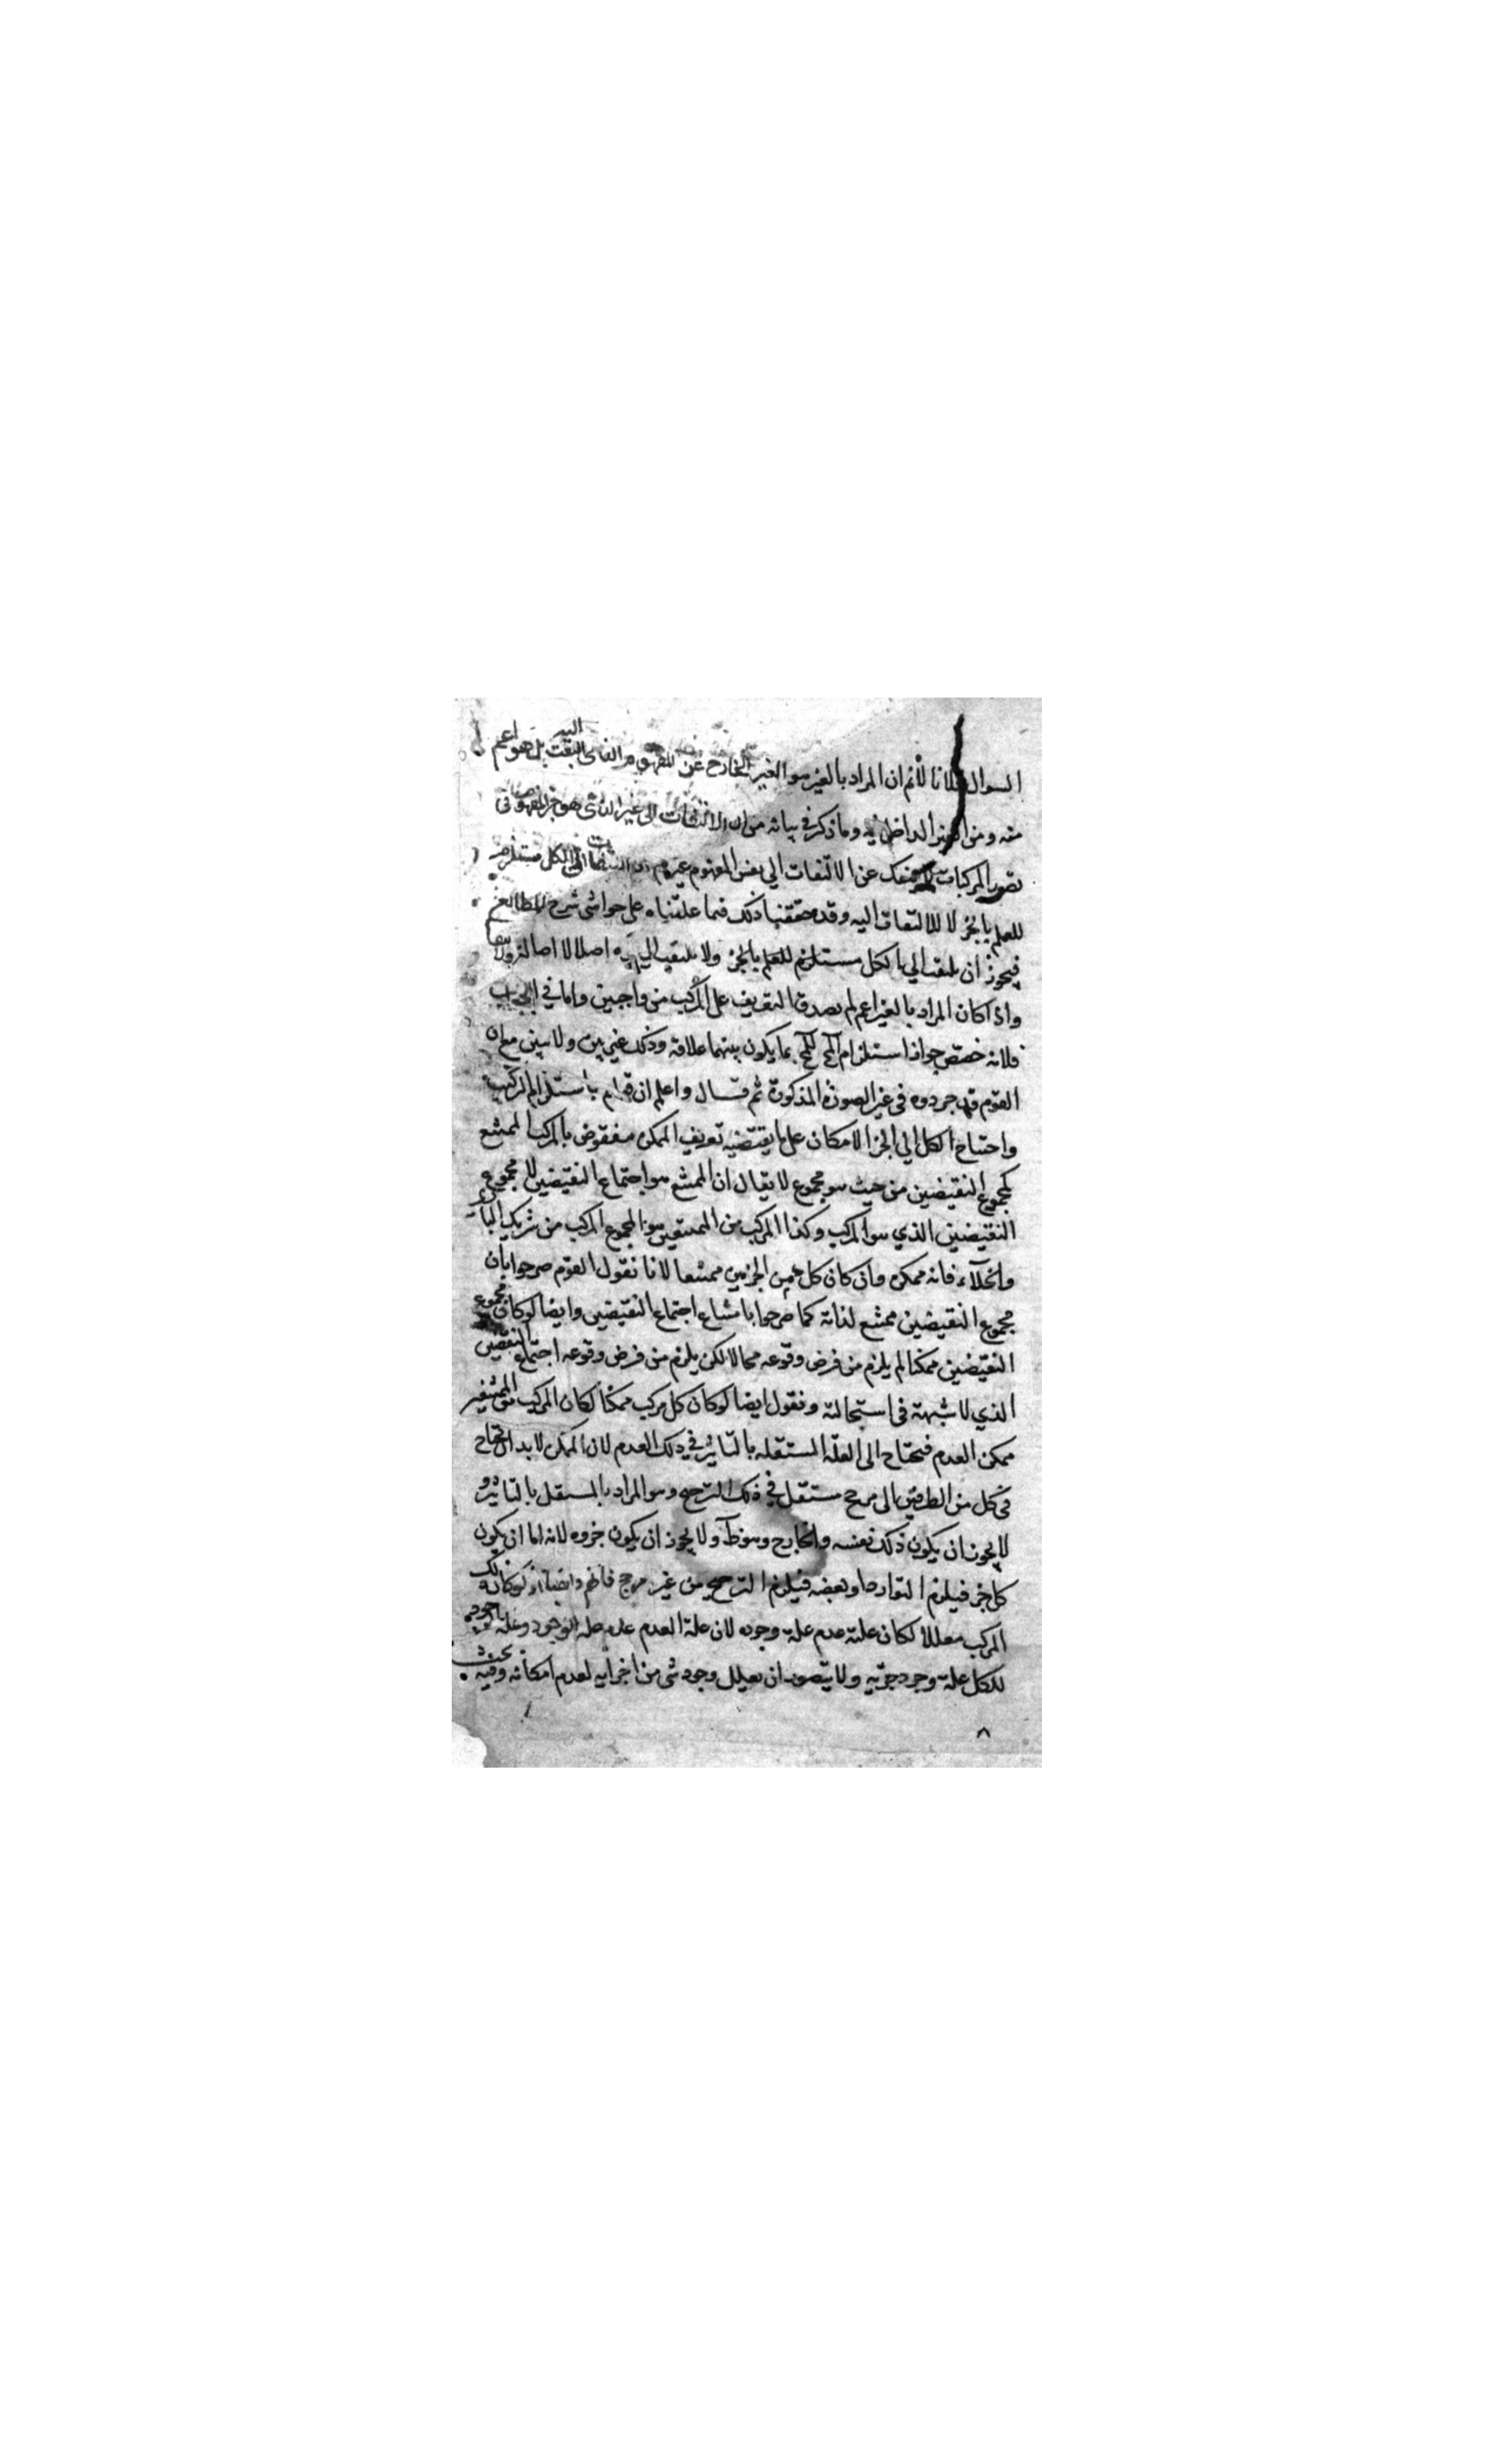 السوال فلانا لانم ان المراد بالغير هو الغير الخارج عن المفهوم الملتفت اليه بل هو اعم
منه ومن الغير الداخل فيه وما ذكر في بيانه من ان الالتفات الى غير الذي هو جزء المفهوم في
تصور المركبات لا ينفك عن الالتفات الي نفس المفهوم غير مم الكل مستلزم
للعلم بالجزء لا للالتفات اليه وقد حققنا ذلك فيما علقناه على حواشي شرح المطالع
فيجوز ان يلتفت الي الكل مستلزم للعلم بالجزء ولا يلتفت اليه اصلا لا اصالة ولا تبعا
واذا كان المراد بالغير اعم لم يصدق التعريف على المركب من واجبين واما في الجواب
فلانه خصص جواز استلزام المح للمح بما يكون بينهما علاقة وذلك غير بين ولا مبين مع ان
القوم قد جردوه في غير الصورة المذكورة ثم قال واعلم ان قولهم باستلزام التركيب
واحتياج الكل الي الجزء الامكان على ما يقتضيه تعريف الممكن منقوض بالمركب الممتنع
كمجموع النقيضين من حيث هو مجموع لا يقال ان الممتنع هو اجتماع النقيضين لا مجموع
النقيضين الذي هو المركب وكذا المركب من الممتنعين هو المجموع المركب من شريك الباري
والخلآء فانه ممكن وان كان كل من الجزئين ممتنعا لانا نقول القوم صرحوا بان
مجموع النقيضين ممتنع لذاته كما صرحوا بامتناع اجتماع النقيضين وايضا لو كان مجموع
النقيضين ممكنا لم يلزم من فرض وقوعه محالا لكن يلزم من فرض وقوعه اجتماع النقيضين
الذي لا شبهة في استحالته ونقول ايضا لو كان كل مركب ممكنا لكان المركب من الممتنعين
ممكن العدم فيحتاج الى العلة المستقلة بالتاثير في ذلك العدم لان الممكن لا بد ان يحتاج
في كل من الطرفين الى مرجح مستقل في ذلك الترجيح وهو المراد بالمستقل بالتاثير و
لا يجوز ان يكون ذلك نفسه والخارج وهو ظ ولا يجوز ان يكون جزوه لانه اما ان يكون
كل جزء فيلزم التوارد او بعضه فيلزم الترجيح من غير مرجح فافهم وايضا لو كان ذلك
المركب معللا لكان علته عدم علة وجوده لان علة العدم عدم علة الوجود وعلة وجود
الكل علة وجود جزئيه ولا يتصور ان يعلل وجود شي من اجزائه لعدم امكانه وفيه بحث
٨